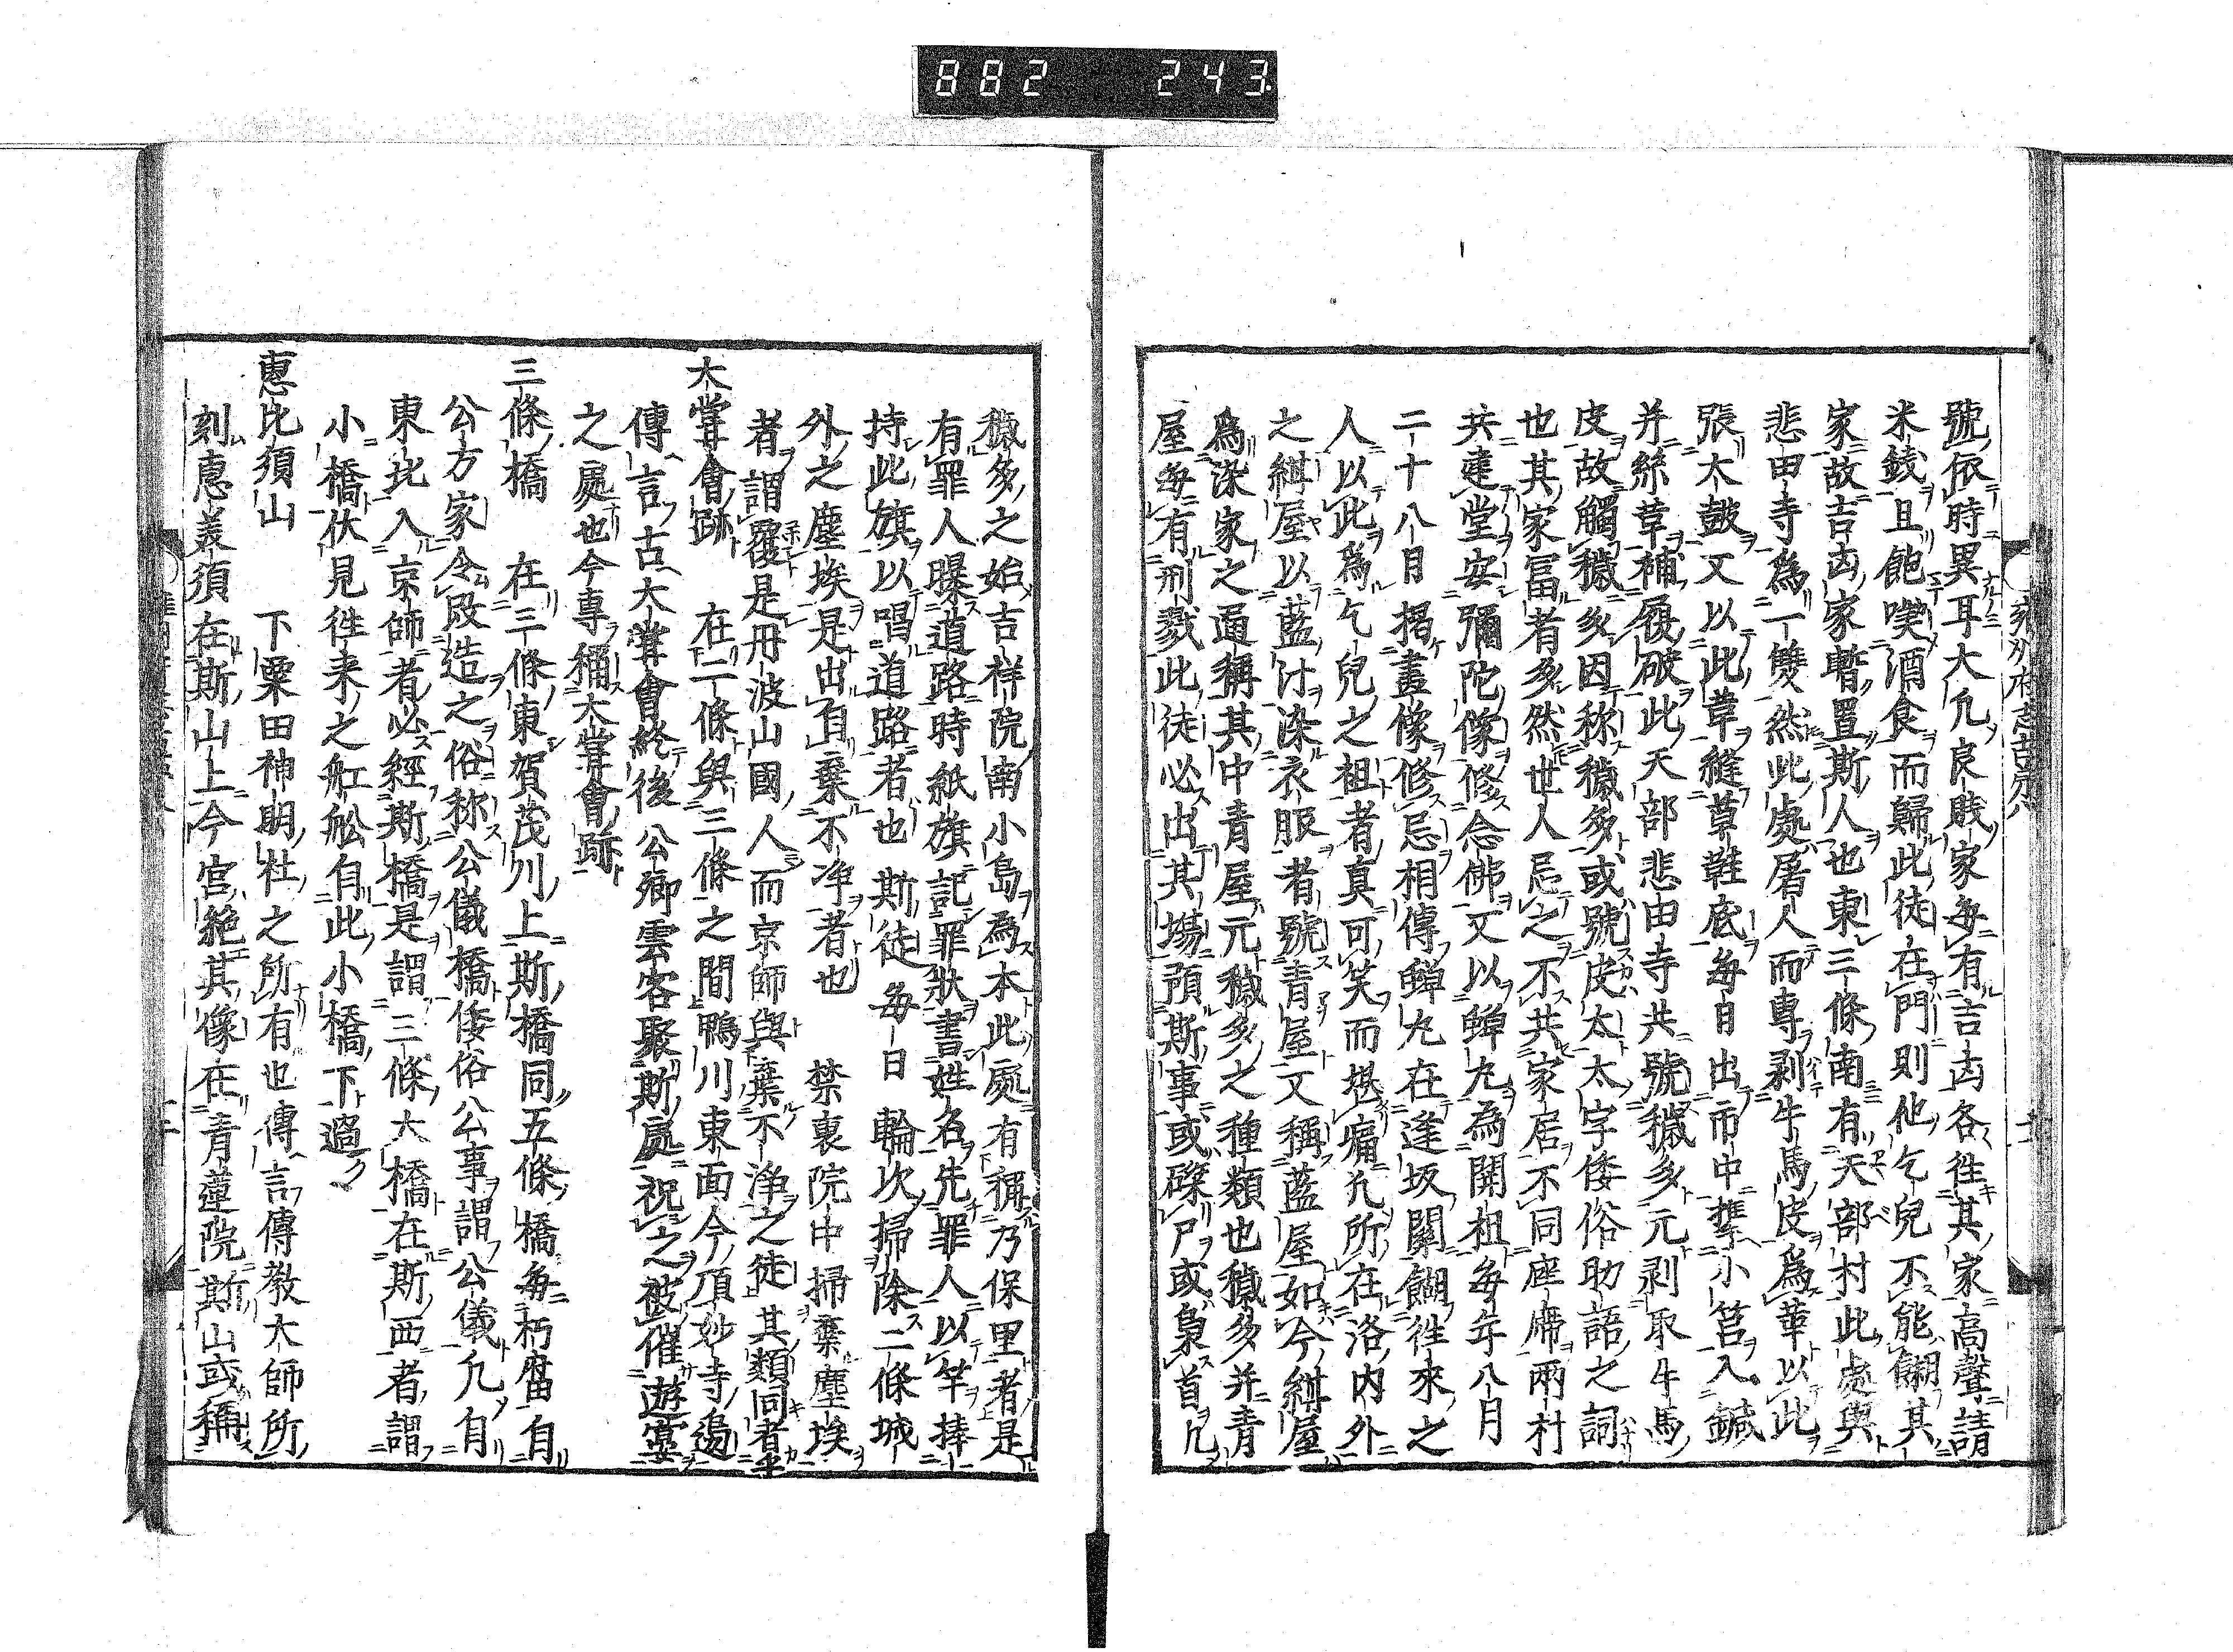 882 243
號依時異耳大凢良賤家每有吉凶各徃其家高聲請
米錢且飽喫酒食而歸此徒在門則他乞兒不能餬其
家故吉凶家暫置斯人也東三條南有天部村此處與
悲田寺爲一雙然此處屠人而專剥牛馬皮爲華以此
張太皷又以此韋縫草鞋底每日出市中携小筥入鍼
并絲韋補履破此天部悲田寺共號穢多元剥取牛馬
皮故觸穢多因称穢多或號皮太太字倭俗助語之詞
也其家冨者多然世人忌之不共家居不同座席兩村
共建堂安彌陀像修念佛又以蟬丸為開祖每年八月
二十八日揭畫像修忌相傳蟬丸在逢坂關餬徃來之
人以此爲乞兒之祖者真可笑而堪痛凢所在洛内外
之紺屋以藍汁染衣服者號青屋又稱藍屋如今紺屋
爲染家之通稱其中青屋元穢多之種類也穢多并青
屋每有刑戮此徒必出其場預斯事或磔尸或梟首凢
穢多之始吉祥院南小島爲本此處有稱乃保里者是
有罪人曝道路時紙旗記罪狀書姓名先罪人以竿捧
持此旗以唱道路者也 斯徒每日輪次掃除二條城
外之塵埃是出自棄不净者也 禁裏院中掃棄塵埃
者謂覆是丹波山國人而京師與棄不浄之徒其類同者乎
大嘗會跡 在二條與三條之間鴨川東面今頂妙寺邊
傳言古大嘗會終後 公卿雲客聚斯處祝之被催遊宴
之處也今專稱大嘗會跡
三條橋 在三條東賀茂川上斯橋同五條橋每朽腐自
公方家令改造之俗称公儀橋倭俗公事謂公儀凢自
東北入京師者必經斯橋是謂三條大橋在斯西者謂
小橋伏見徃来之舩舩自此小橋下過
惠比須山 下粟田神明社之所有也傳言傳教大師所
刻惠美須在斯山上今宮絶其像在青蓮院斯山或稱